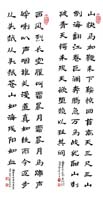 山快马加鞭未下鞍惊回首离天三尺三山
倒海翻江卷巨澜奔腾急万马战犹酣山刺
破青天锷未残天欲堕赖以拄其间
西风烈长空雁叫霜晨月霜晨月马蹄声
碎喇叭声咽雄关漫道真如铁而今迈步
从头越从头越苍山如海残阳如血